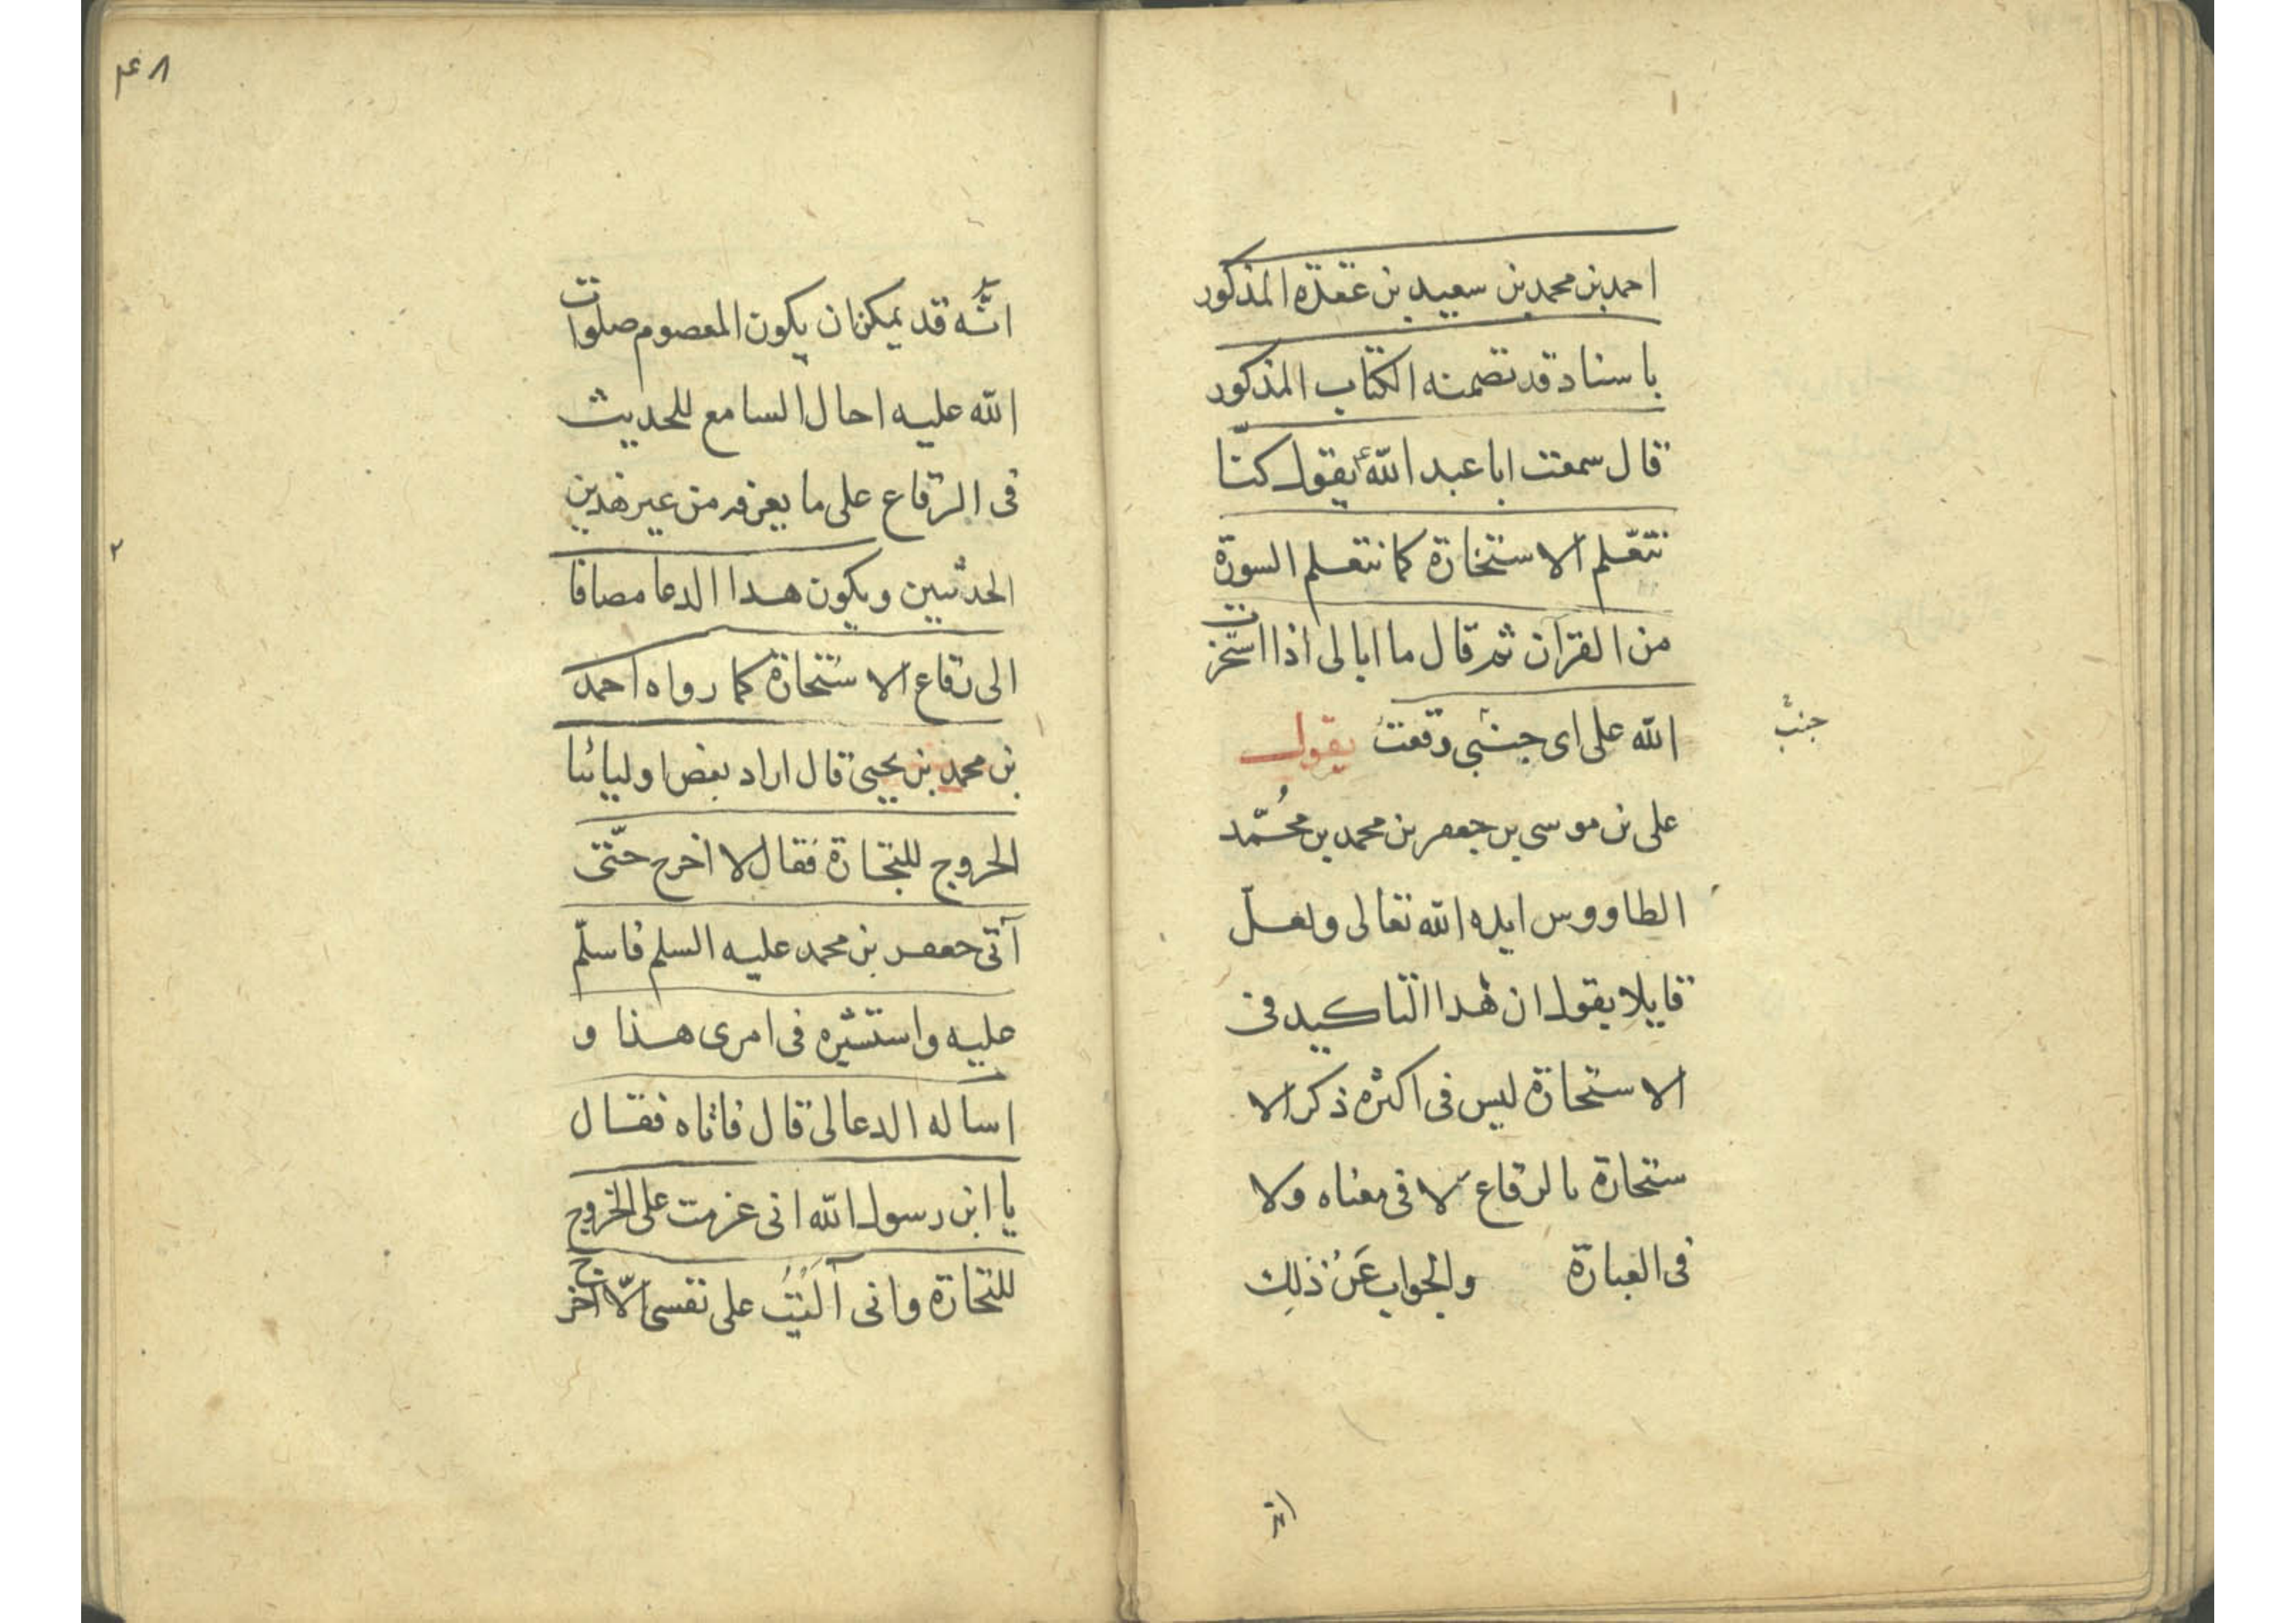 احمد بن محمد بن سعيد بن عقدة المذكور
باسناد قد تضمنه الكتاب المذكور
قال سمعت ابا عبد الله ع يقول كنّا
نتعّلم الاستخارة كما نتعلم السورة
من القرآن ثم قال ما ابالى اذا استخرت
الله على اى جنبى وقعت يقول
جنبىَّ
على بن موسى بن جعفر بن محمد بن محُمّد
الطاووس ايده الله تعالى ولعلّ
قايلا يقول ان هذا التاكيد فى
الاستخارة ليس فى اكثره ذكر الا
ستخارة بالرقاع لا فى معناه ولا
فى العبارة والجواب عَنْ ذلِك
انّه
۴۸
انَّه قد يمكن ان يكون المعصوم صلوات
الله عليه احال السامع للحديث
فى الرقاع على ما يعرفه من غير هذين
۲
الحديثين ويكون هذا الدعا مضافا
الى رقاع الاستخارة كما رواه احمد
بن محمد بن يحيى قال اراد بعض اوليائنا
الخروج للتجارة فقال لا اخرج حتّى
آتى جعفر بن محمد عليه السلم فاسلّم
عليه واستشيره فى امرى هذا و
اساله الدعا لى قال فاتاه فقال
يا ابن رسول الله انى عزمت على الخروج
للتجارة وانى آلَيْتُ على نفسى الّا اخرج